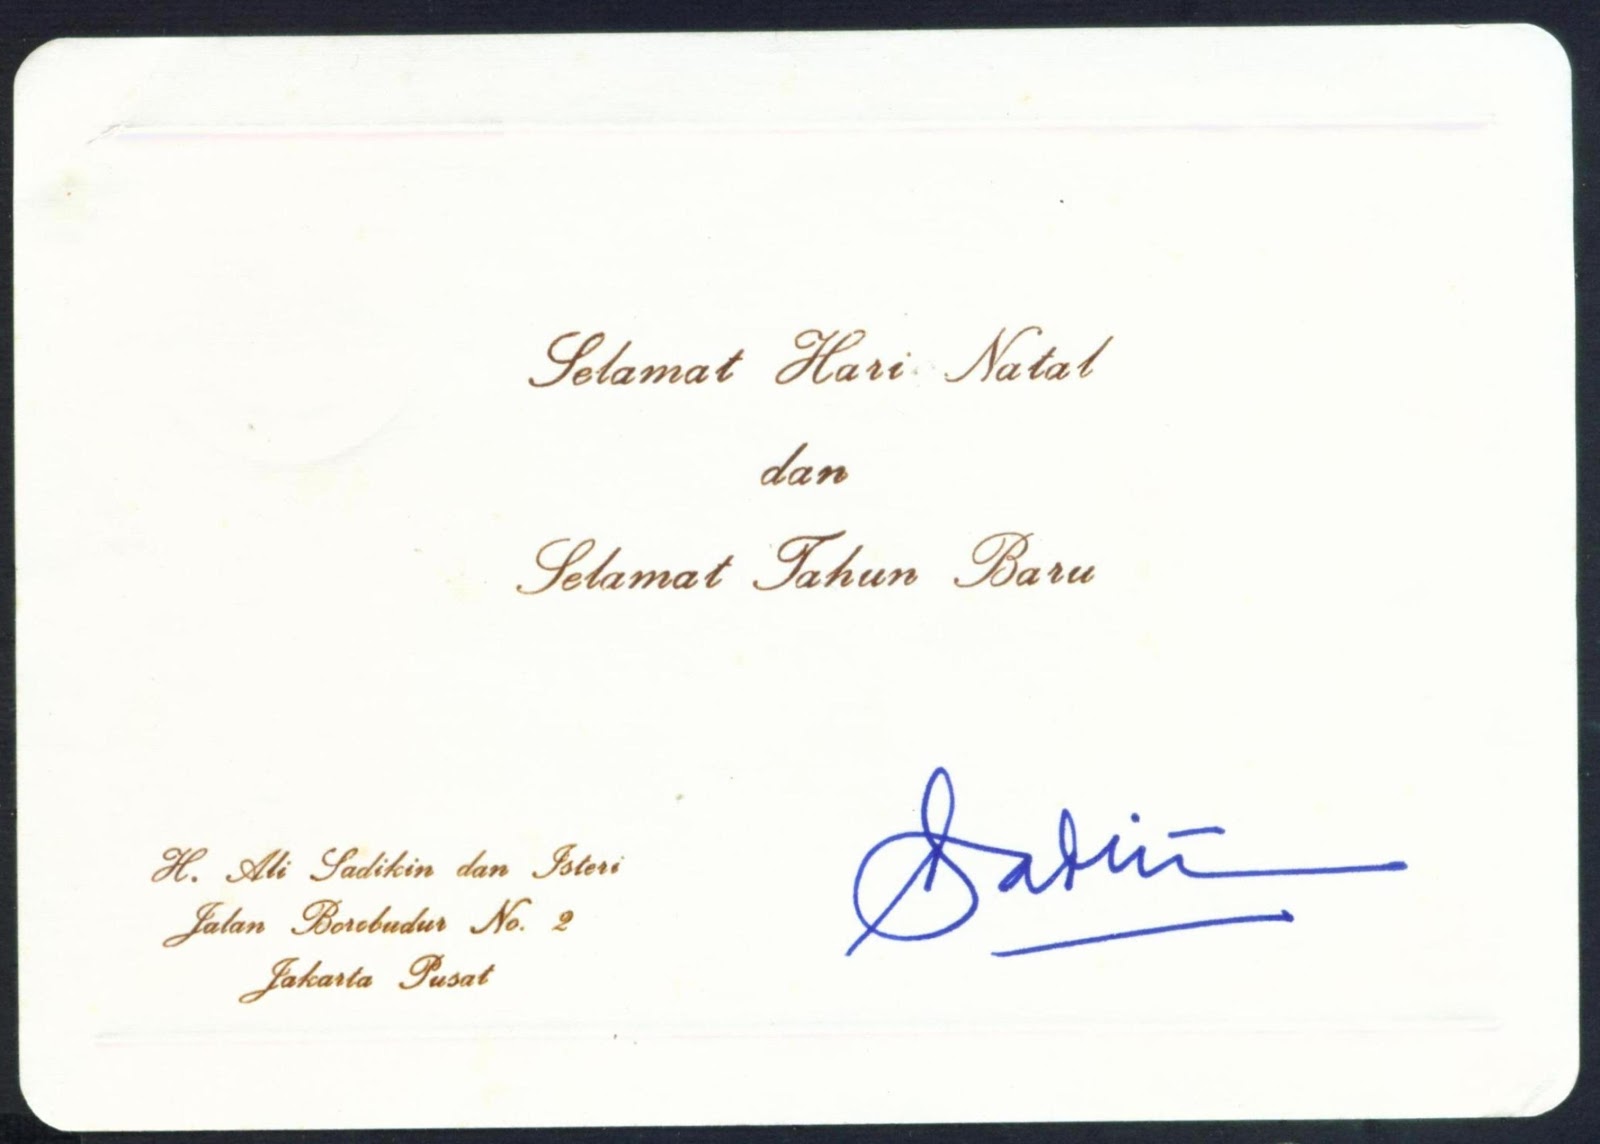 Selamat Hari Natal
dan
Selamat Tahun Baru
H. Ali Sadikin dan Isteri
Jalan Borobudur No. 2
Jakarta Pusat